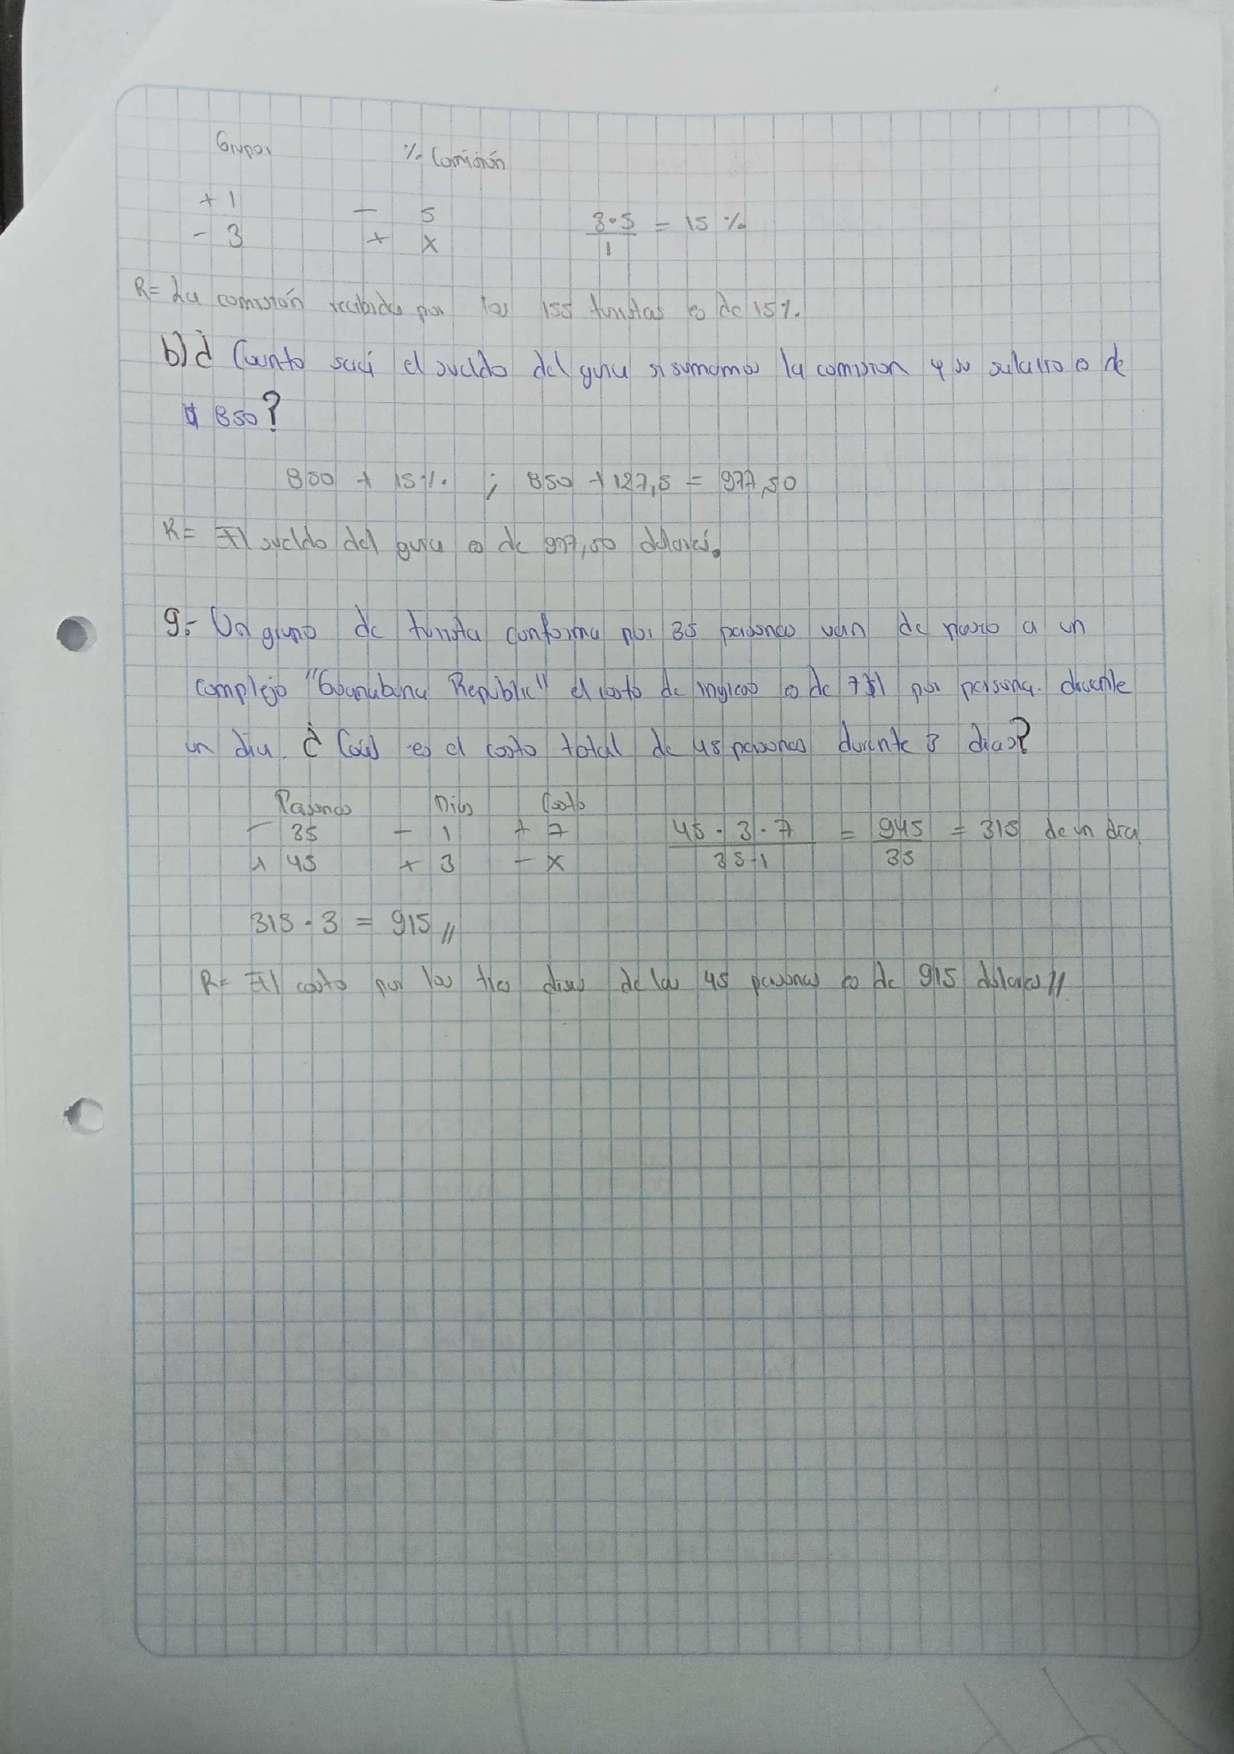 Grupos % Comisión
+ 1 - 5 3·5/1 = 15 %
- 3 + x
R= La comisión recibida por los 155 turistas es de 15%.
b) ¿Cuanto será el sueldo del guia si sumamos la comision y su salario es de
$ 850?
850 + 15%. ; 850 + 127,5 = 977,50
R= El sueldo del guia es de 977,50 dólares.
9.- Un grupo de turista conforma por 35 personas van de paseo a un
complejo "Guanabana Republic" el costo de ingreso es de 7$ por persona. durante
un dia. ¿Cuál es el costo total de 45 personas durante 3 dias?
Personas Dias Costo
- 35 - 1 + 7 45 · 3 · 7 / 35·1 = 945/35 = 315 de un dia
+ 45 + 3 - x
315 · 3 = 915 //
R= El costo por los tres dias de las 45 personas es de 915 dolares //